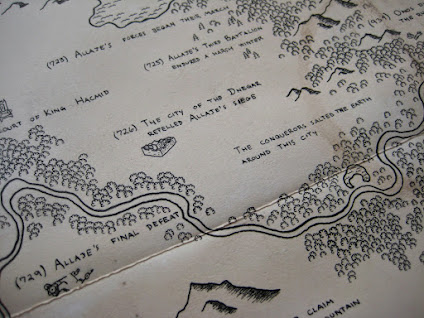 (725) ALLAZE'S FORCES BEGAN THEIR MARCH
(725) ALLAZE'S THIRD BATTALION
ENDURED A HARSH WINTER
COURT OF KING HACAUD
(726) THE CITY OF THO DREGAR
REPELLED ALLAZE'S SIEGE
THE CONQUERORS SALTED THE EARTH
AROUND THIS CITY
(729) ALLAZE'S FINAL DEFEAT
CLAIM
MOUNTAIN